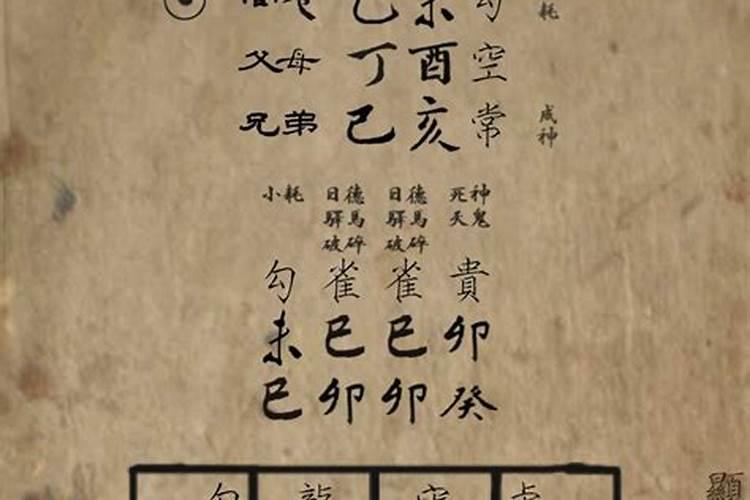 乙未勾 耗
父母 丁酉空
兄弟 己亥常 成神
小耗 日德 日德 死神
驛馬 驛馬 天鬼
破碎 破碎
勾 雀 雀 貴
未 巳 巳 卯
巳 卯 卯 癸
勾 龍 空 虎
顯